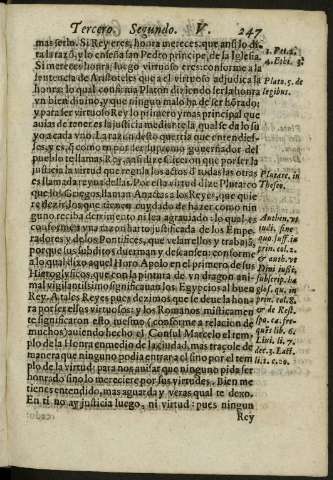 Tercero. Segundo. V. 247
mas serlo. Si Rey eres, honra mereces, que ansi lo di-
ra la razõ, y lo enseña san Pedro principe, de la Iglesia.
Si mereces honra, luego virtuoso eres: conforme a la
sentencia de Aristoteles que a el virtuoso adjudica la
honra: lo qual confirma Platon diziendo ser la honra
vn bien diuino, y que ningun malo ha de ser hõrado:
y para ser virtuoso Rey lo primero y mas principal que
auias de tener es la justicia mediante la qual se da lo su
yo a cada vno. La razon desto querria que entendies-
ses, y es, q̃ como en por ser justo como gouernador del
pueblo te llamas Rey, ansi dize Ciceron que por ser la
justicia la virtud que regula los actos d̃ todas las otras
es llamada reyna dellas. Por esta virtud dize Plutarco
que los Griegos llaman Anactas a los Reyes, que quie
re dezir, los que tienen cuydado de hazer como nin
guno reciba detrimento ni sea agrauiado: lo qual es
conforme a vna razon harto justificada de los Empe-
radores y de los Pontifices, que velan ellos y trabajã,
porque sus subditos duerman y descansen: conforme
a lo qual dixo aquel Horo Apolo en el primero de sus
Hieroglyficos, que con la pintura de vn dragon ani-
mal vigilantissimo significauan los Egypcios al buen
Rey. A tales Reyes pues dezimos que se deue la hon-
ra por ser ellos virtuosos: y los Romanos misticamen
te significaron esto mesmo (conforme a relacion de
muchos) auiendo hecho el Consul Marcelo el tem-
plo de la Honra en medio de la ciudad, mas traçole de
manera que ninguno podia entrar a el sino por el tem
plo de la virtud: para nos auisar que ninguno pida ser
honrado sino lo mereciere por sus virtudes. Bien me
tienes entendido, mas aguarda y veras qual te dexo.
En ti no ay justicia luego, ni virtud: pues ningun
Rey
1. Pet. 2.
4. Ethi. 3.
Plato. 5. de
legibus.
Plutarc. in
Theseo.
Authen. vt
iudi. sine
quo suff. in
prin. col. 2.
& auth. vt
Diui iussio.
subscrip. ha
glos. qu. in
prin. col. 8.
& de Rest.
spo. ca. fre-
quẽs lib. 6.
Liui. li. 7.
dec. 3. Lact.
li. 1. c. 20.